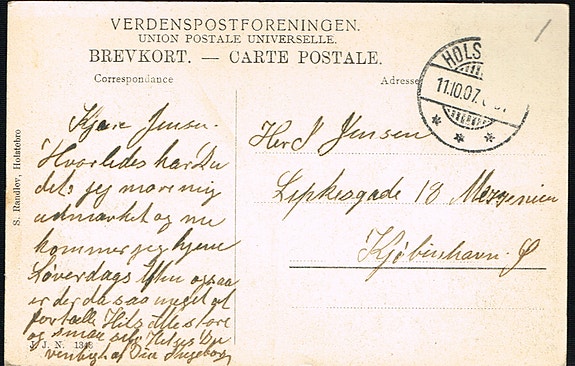 VERDENSPOSTFORENINGEN.
UNION POSTALE UNIVERSELLE.
BREVKORT. — CARTE POSTALE.
Correspondance
Adresse
HOLS
11.10.07.
1
Kjære Jensen.
Hvorledes har Du
det? jeg morer mig
udmærket og nu
kommer jeg hjem
Løverdags
er der da saa meget at
fortælle Hils Alle store
og smaa
venligst af Din Ingeborg
Her J Jensen
Lipkesgade 18 Mezzenien
Kjøbenhavn. Ø
S. Randlev, Holstebro
J. J. N. 1348